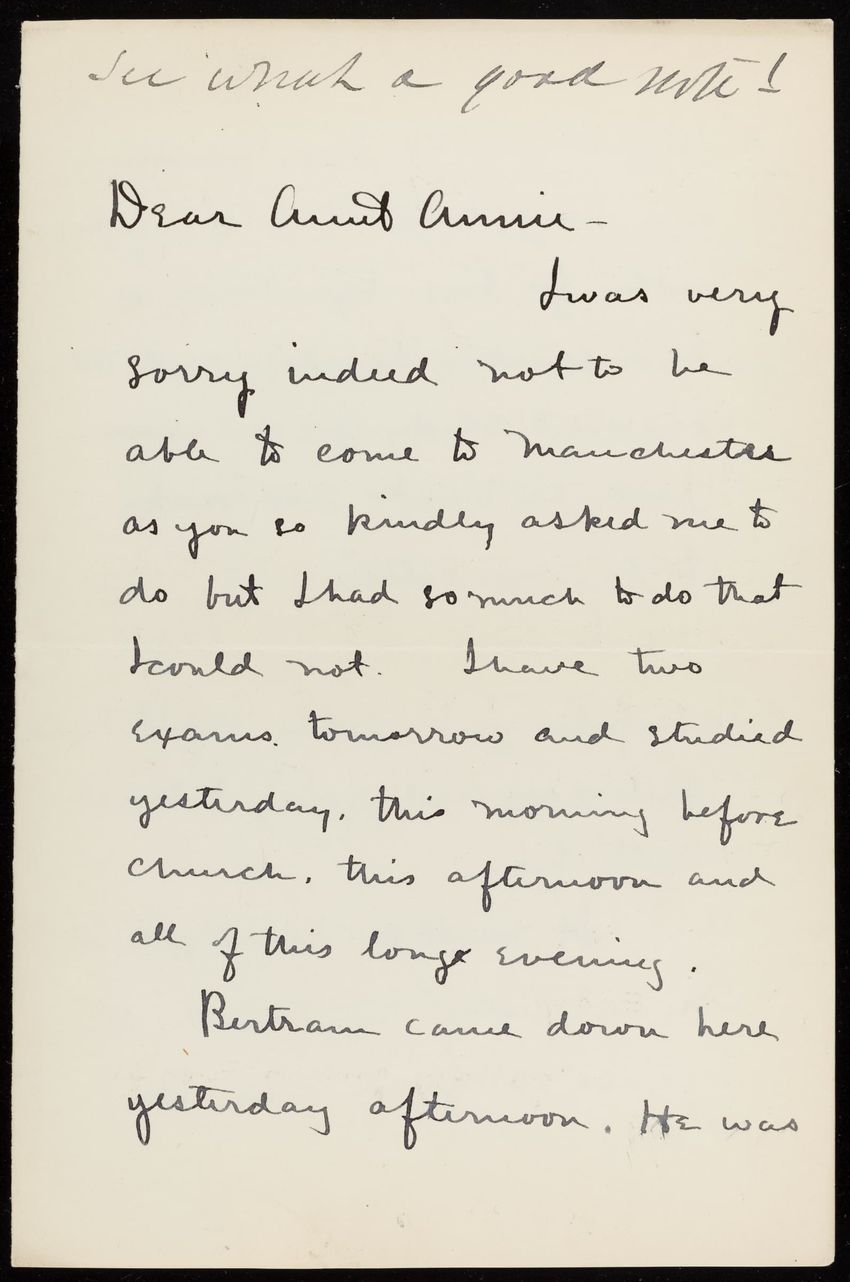 See what a good note!
Dear Aunt Annie -
I was very
sorry indeed not to be
able to come to Manchester
as you so kindly asked me to
do but I had so much to do that
I could not. I have two
exams. tomorrow and studied
yesterday, this morning before
church, this afternoon and
all of this long evening.
Bertram came down here
yesterday afternoon. He was